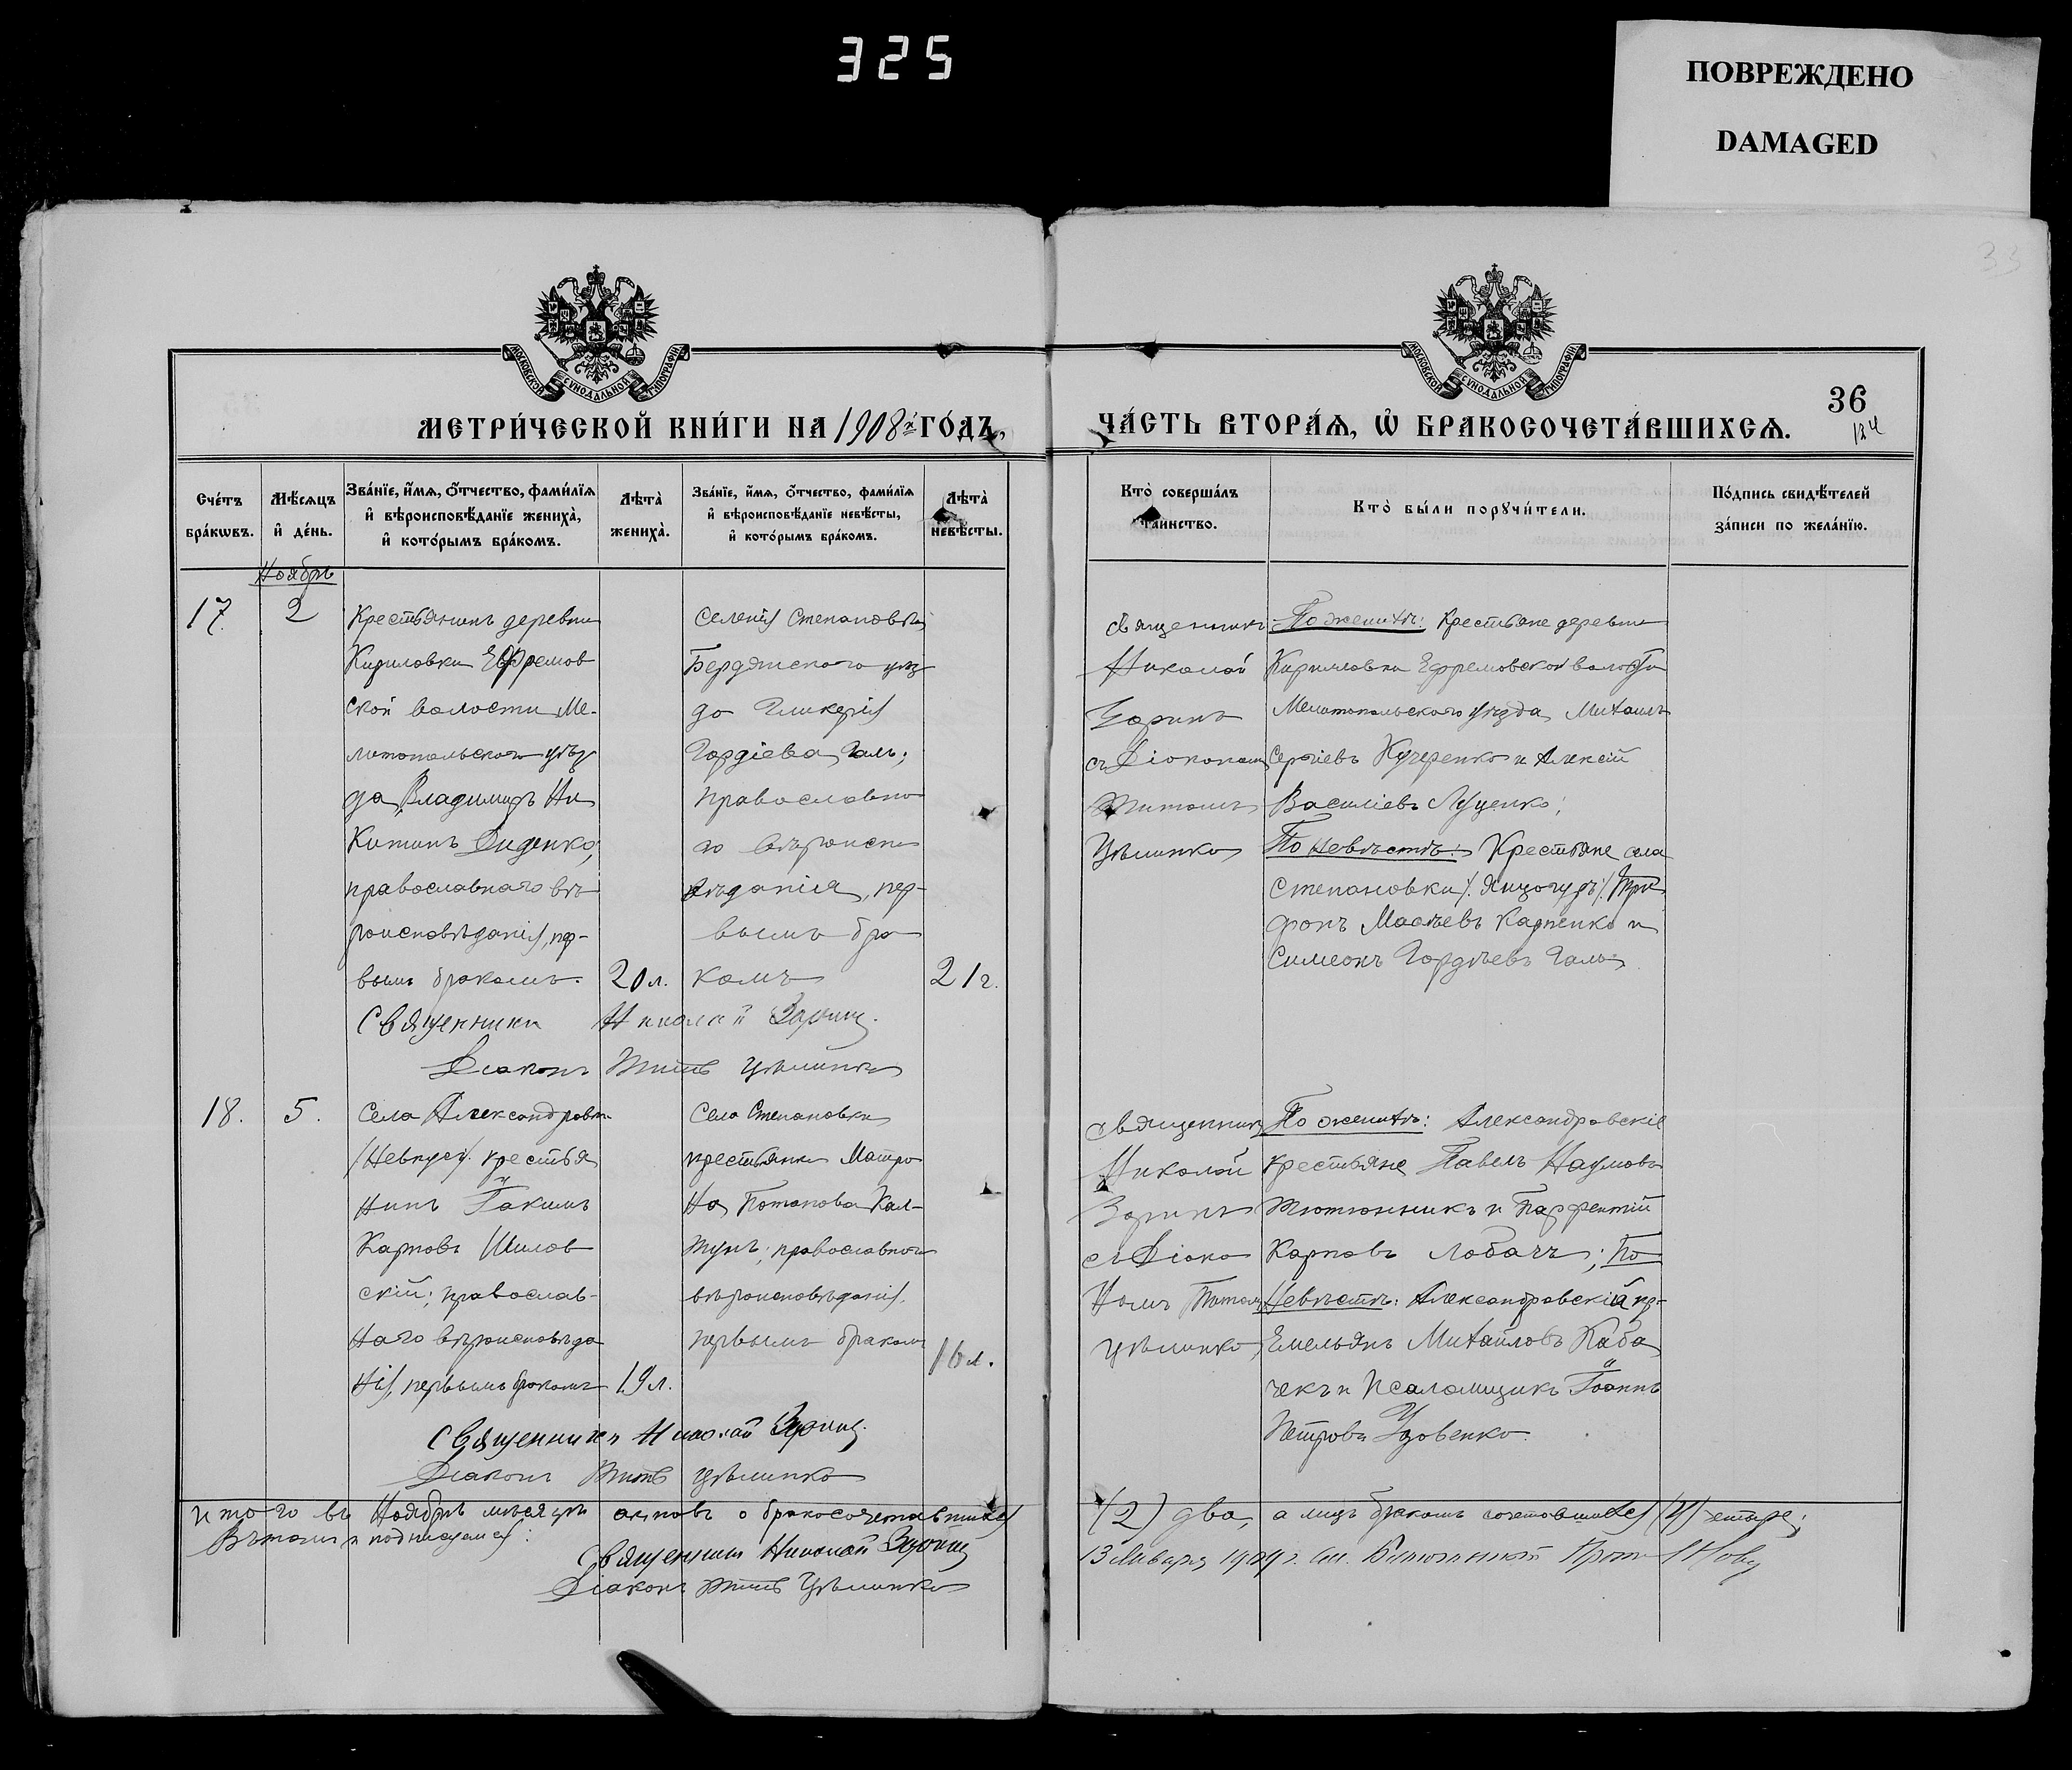 325
ПОВРЕЖДЕНО
DAMAGED
МОСКОВСКОЙ СУНОДАЛЬНОЙ ТИПОГРАФІИ
МЕТРИ́ЧЕСКОЙ КНИ́ГИ НА 1908й ГО́ДЪ,
Сче́тъ бра́кѡвъ.
Мѣ́сяцъ и҆ де́нь.
Зва́нїе, и҆́мѧ, ѻ҆́тчество, фами́лїѧ
и҆ вѣроисповѣ́данїе жениха̀,
и҆ кото́рымъ бра́комъ.
Лѣта̀ жениха̀.
Зва́нїе, и҆́мѧ, ѻ҆́тчество, фами́лїѧ
и҆ вѣроисповѣ́данїе невѣ́сты,
и҆ кото́рымъ бра́комъ.
Лѣта̀ невѣ́сты.
Ноябрь
17.
2
Крестьянинъ деревни
Кириловки Ефремов
ской волости Ме-
литопольскаго уѣз
да, Владимиръ Ни
китинъ Диденко,
православнаго вѣ
роисповѣданія, пер-
вымъ бракомъ.
20 л.
Селенія Степановки
Бердянскаго уѣз
да Гликерія
Гордіева Галь;
православна
го вѣроиспо
вѣданія, пер-
вымъ бра
комъ
21 г.
Священникъ Николай Заринъ.
Діаконъ Титъ Цѣлинко
18.
5.
Села Александровки
крестья
нинъ Іакимъ
Карповъ Шилов
скій; православ-
наго вѣроисповѣда
нія, первымъ бракомъ
19 л.
Села Степановки
крестьянка Матро
на Потапова Кал-
тунъ; православнаго
вѣроисповѣданія,
первымъ бракомъ
16 л.
Священникъ Николай Заринъ.
Діаконъ Титъ Цѣлинко
Итого въ Ноябрѣ мѣсяцѣ актовъ о бракосочетавшихся
Въ томъ и подписуемся:
Священникъ Николай Заринъ
Діаконъ Титъ Цѣлинко
МОСКОВСКОЙ СУНОДАЛЬНОЙ ТИПОГРАФІИ
36
ЧА́СТЬ ВТОРА́Ѧ, Ѡ҆ БРАКОСОЧЕТА́ВШИХСѦ.
124
Кто̀ соверша́лъ та́инство.
Кто̀ бы́ли порꙋчи́тели.
По́дпись свидѣ́телей
за́писи по жела́нїю.
Священникъ
Николай
Заринъ
съ Діакономъ
Титомъ
Цѣлинко
По женихѣ: Крестьяне деревни
Кириловки Ефремовской волости
Мелитопольскаго уѣзда Михаилъ
Сергіевъ Кучеренко и Алексій
Василіевъ Луценко;
По невѣстѣ: Крестьяне села
Степановки Три
фонъ Карпенко и
Симеонъ Гордѣевъ Галь
Священникъ
Николай
Заринъ
съ Діако
номъ Титомъ
Цѣлинко,
По женихѣ: Александровскіе
крестьяне Павелъ Наумовъ
Тютюнникъ и Парфентій
Карповъ Лобачъ; По
невѣстѣ: Александровскій кр-
Емельянъ Михайловъ Каба
чекъ и Псаломщикъ Іоаннъ
Петровъ Удовенко.
(2) два, а лицъ бракомъ сочетавшихся (4) четыре;
13 Января 1909 г.